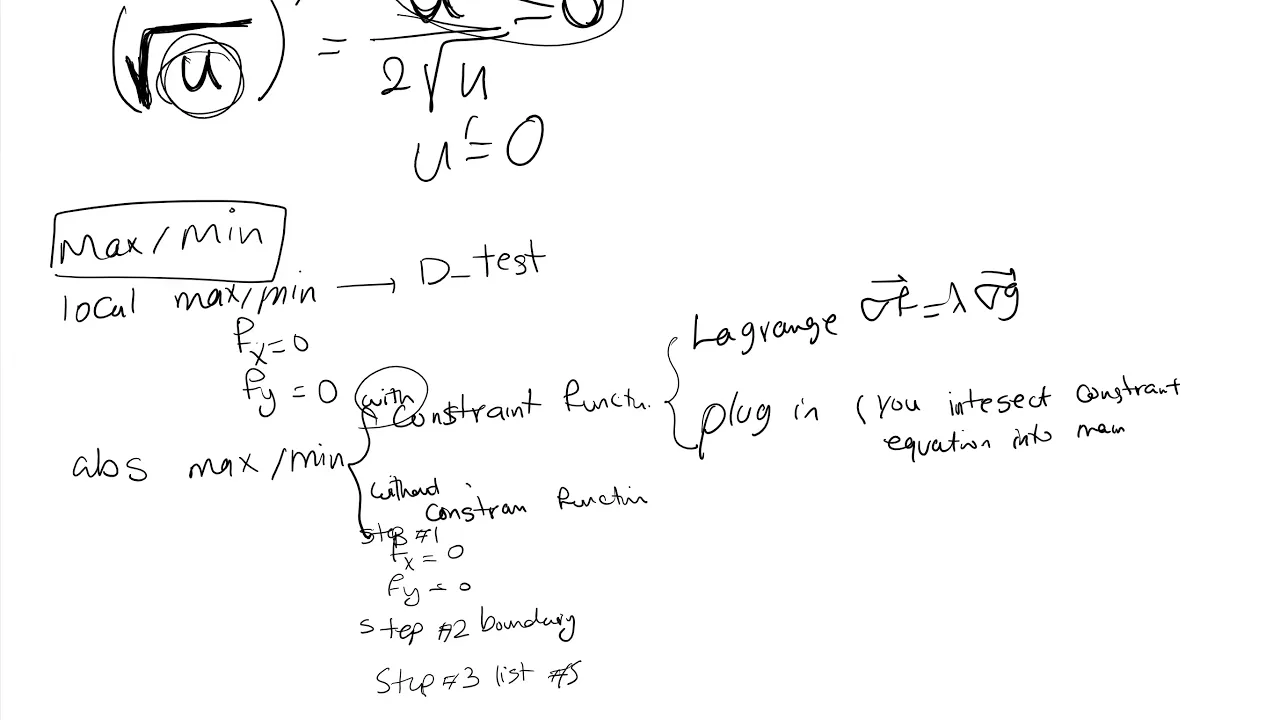 (√u)' = u' = 0
2√u
u' = 0
Max/min
local max/min → D_test
fx = 0
fy = 0
abs max/min
with
A Constraint functi.
Lagrange ∇f = λ ∇g
plug in (you intesect constrant
equation into main
without
constran function
step #1
fx = 0
fy = 0
Step #2 boundary
Step #3 list #s